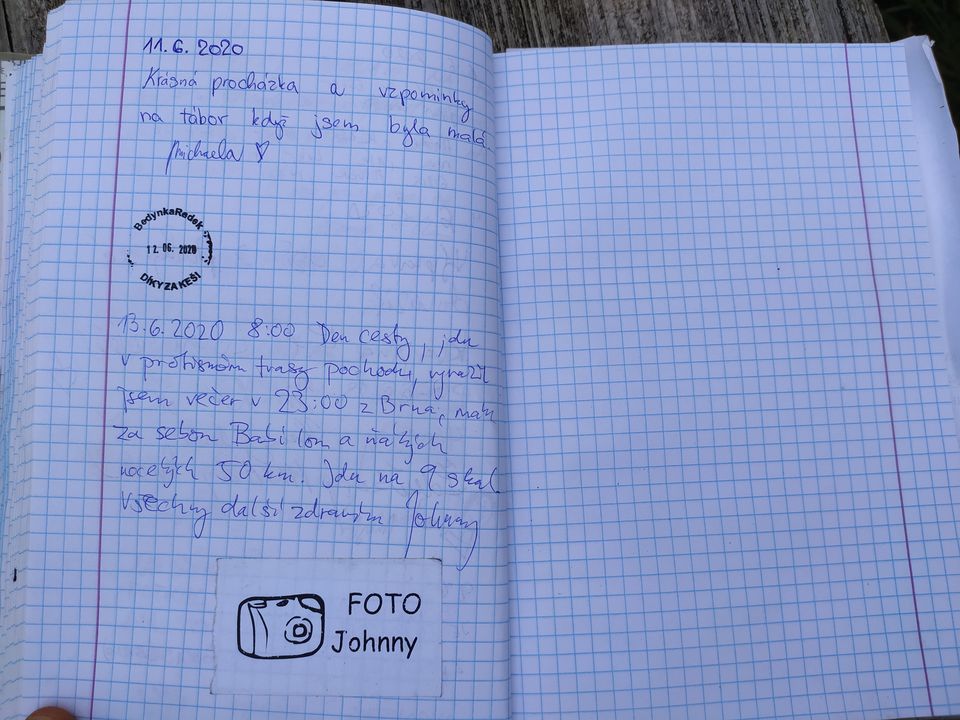 11.6.2020
Krásná procházka a vzpomínky
na tábor když jsem byla malá
Michaela
BedynkaRadek
12.06.2020
DÍKY ZA KEŠI
13.6.2020 8:00 Den cesty, jdu
v protisměru trasy pochodu, vyrazil
jsem večer v 23:00 z Brna, mám
za sebou Babí lom a
50 km. Jdu na 9 skal
Všechny další zdravím Johnny
FOTO
Johnny